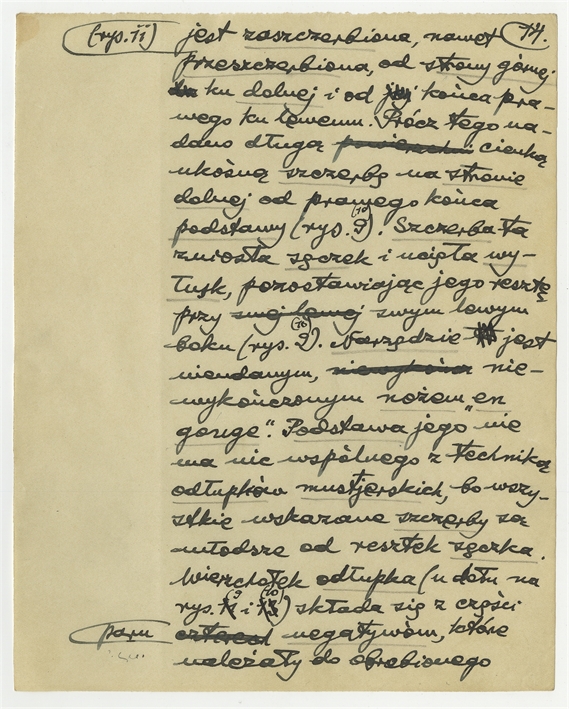 (rys. 11) jest zaszczerbiona, nawet 14.
przeszczerbiona, od strony górnej
ku dolnej i od jej końca pra-
wego ku lewemu. Prócz tego na-
dano długą powierzchni cienką
ukośną szczerbę na stronie
dolnej od prawego końca
podstawy (rys. 9 10). Szczerba ta
zniosła sęczek i ucięła wy-
łusk, pozostawiając jego resztę
przy swej lewej swym lewym
boku (rys. 9 10). Narzędzie jest
nieudanym, nie-
wykończonym nożem „en
gouge". Podstawa jego nie
ma nic wspólnego z techniką
odłupków mustjerskich, bo wszy-
stkie wskazane szczerby są
młodsze od resztek sęczka.
Wierzchołek odłupka (u dołu na
rys. 9 i 10) składa się z części
paru czterech negatywów, które
należały do obrębionego